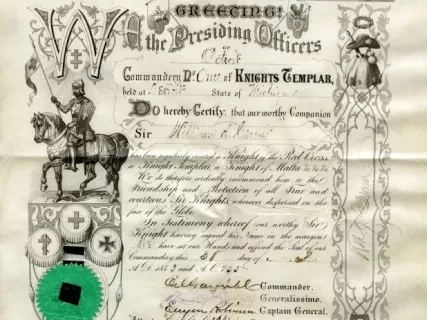 GREETING!
We the Presiding Officers
OF
Detroit
Commandery No. One of KNIGHTS TEMPLAR,
held at Detroit State of Michigan
Do hereby Certify, that our worthy Companion
Sir William
has been regularly created a Knight of the Red Cross
a Knight Templar & Knight of Malta &c &c &c
We do therefore cordially recommend him to the
Friendship and Protection of all true and
courteous Sir Knights, wherever dispersed on the
face of the Globe.
In Testimony whereof our worthy Sir
Knight having signed his Name in the margin
We have set our Hands and affixed the Seal of our
Commandery this 28 day of
A.D. 18 and A.O.
Commander.
Generalissimo.
Eugene Robinson Captain General.